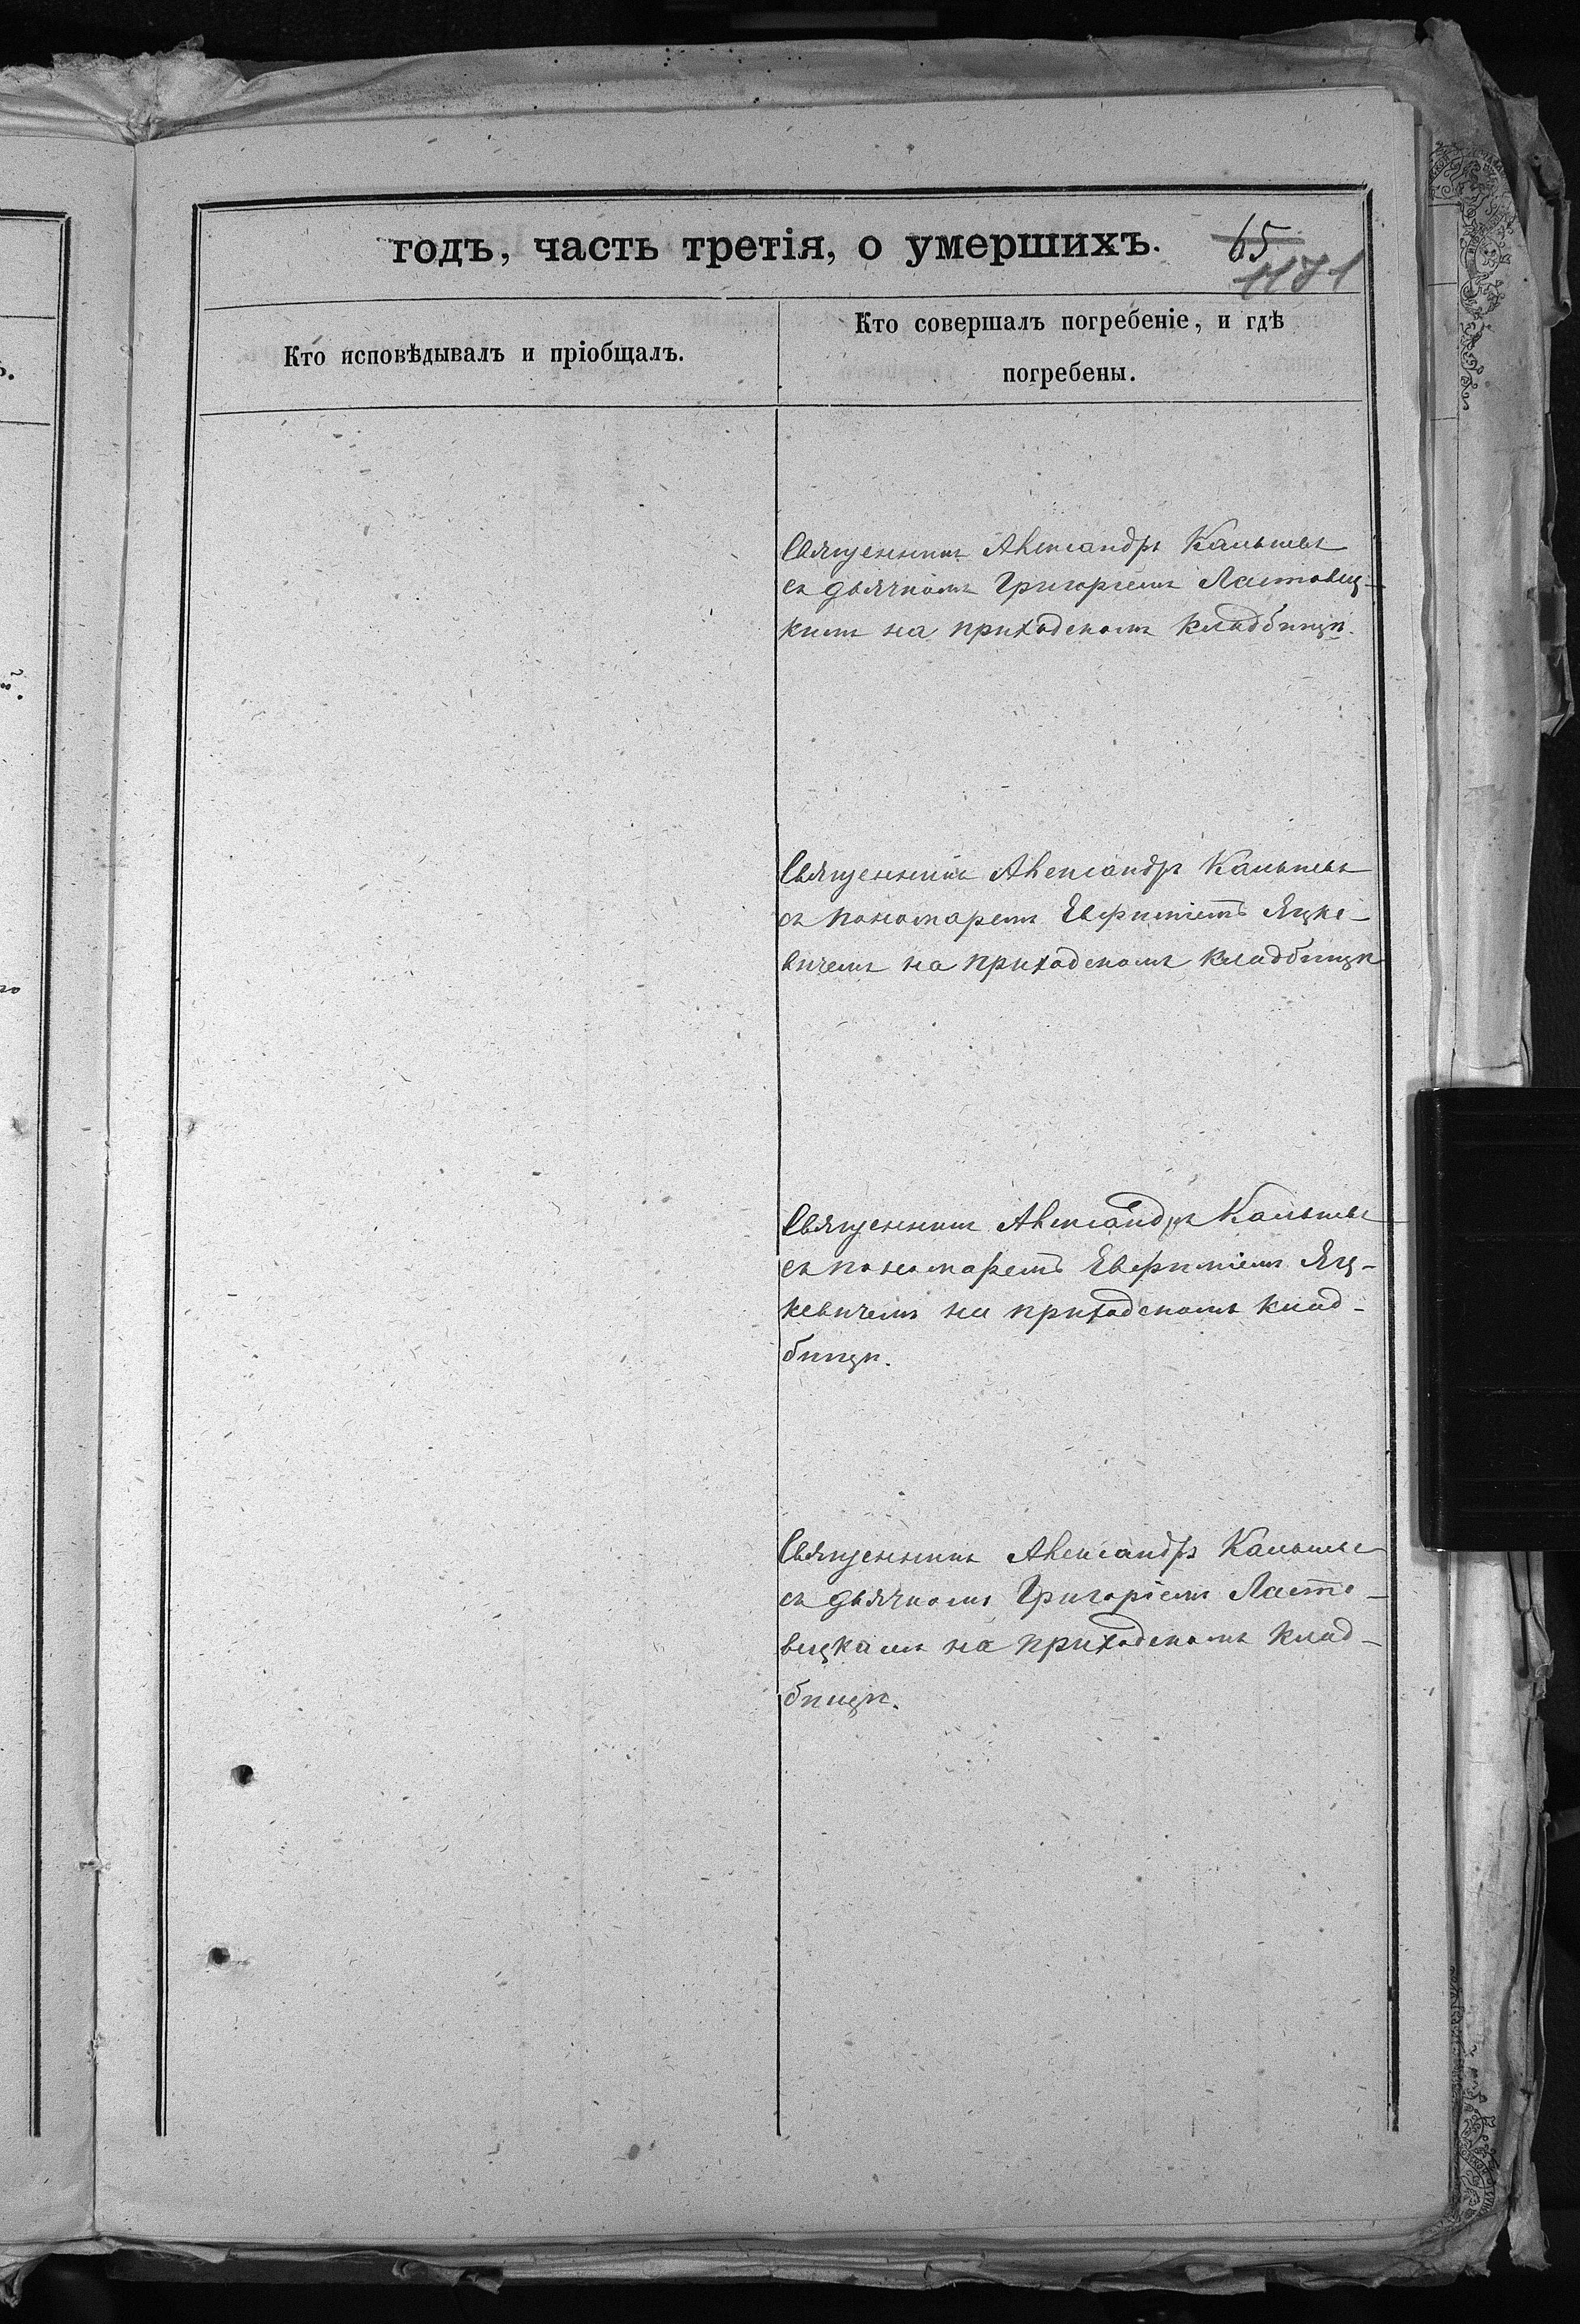 годъ, часть третія, о умершихъ.
65
1171
Кто исповѣдывалъ и пріобщалъ.
Кто совершалъ погребеніе, и гдѣ
погребены.
Священникъ Александръ
съ дьячкомъ Григоріемъ Ластовец-
кимъ на приходскомъ кладбищѣ.
Священникъ Александръ
съ пономаремъ Евфиміемъ Яцке-
вичемъ на приходскомъ кладбищѣ
Священникъ Александръ
съ пономаремъ Евфиміемъ Яц-
кевичемъ на приходскомъ клад-
бищѣ.
Священникъ Александръ
съ дьячкомъ Григоріемъ Ласто-
вецкимъ на приходскомъ клад-
бищѣ.